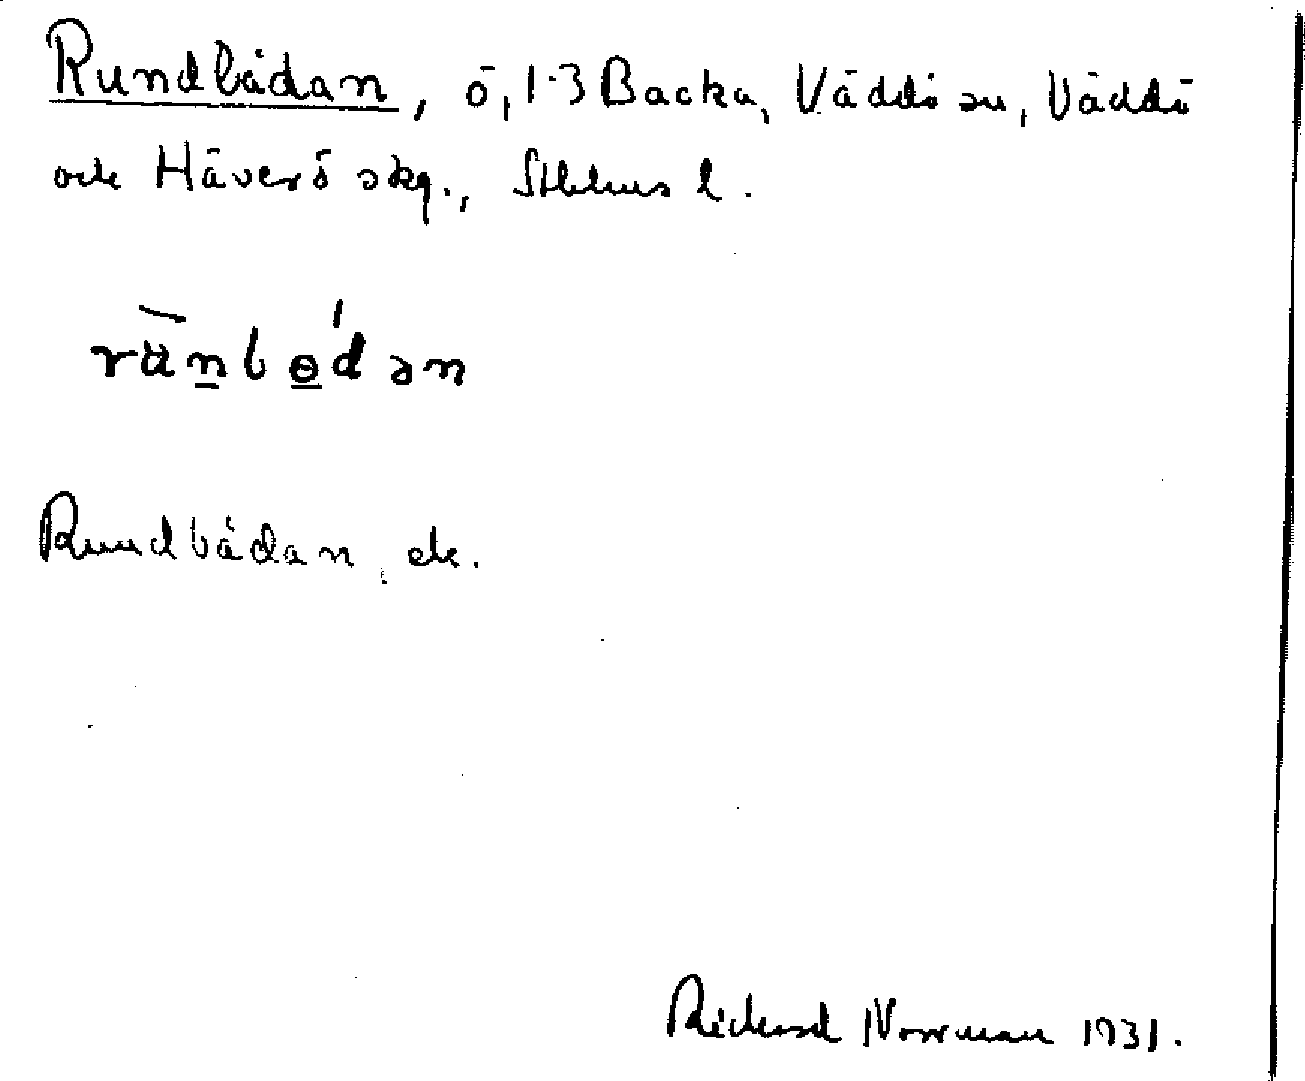 Rundbådan, ö, 1-3 Backa, Väddö sn, Väddö
och Häverö skg., Sthlms l.
rän̲bɵ̲́dən
Rundbådan, ek.
Rickard Norrman 1931.